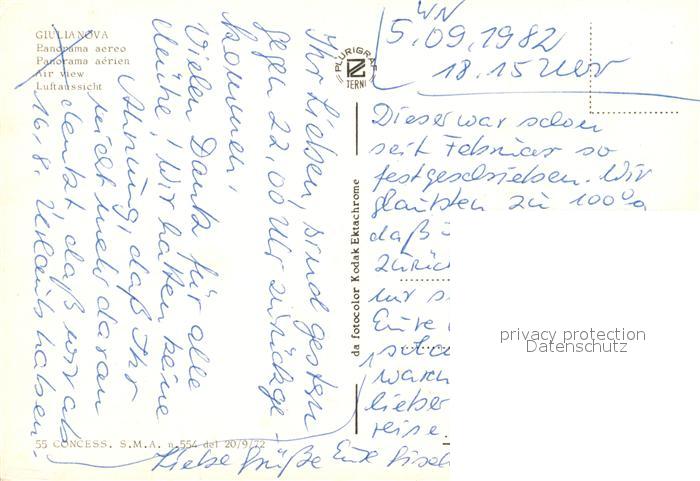 GIULIANOVA
Panorama aereo
Panorama aérien
Air view
Luftaussicht
PLURIGRAF
TERNI
WN
5.09.1982
18.15 Uhr
Ihr Lieben, sind gestern
gegen 22.00 Uhr zurückge-
kommen.
Vielen Dank für alle
Mühe! Wir hatten keine
Ahnung, daß Ihr
nicht mehr daran
denkt daß wir ab
16.8. Urlaub haben.
Dieser war schon
seit Februar so
festgeschrieben. Wir
glaubten zu 100%
daß
zurück
nur
Eure
waren
lieber
reise.
Liebe Grüße Eure
da fotocolor Kodak Ektachrome
55 CONCESS. S.M.A. n.554 del 20/9/72
privacy protection
Datenschutz